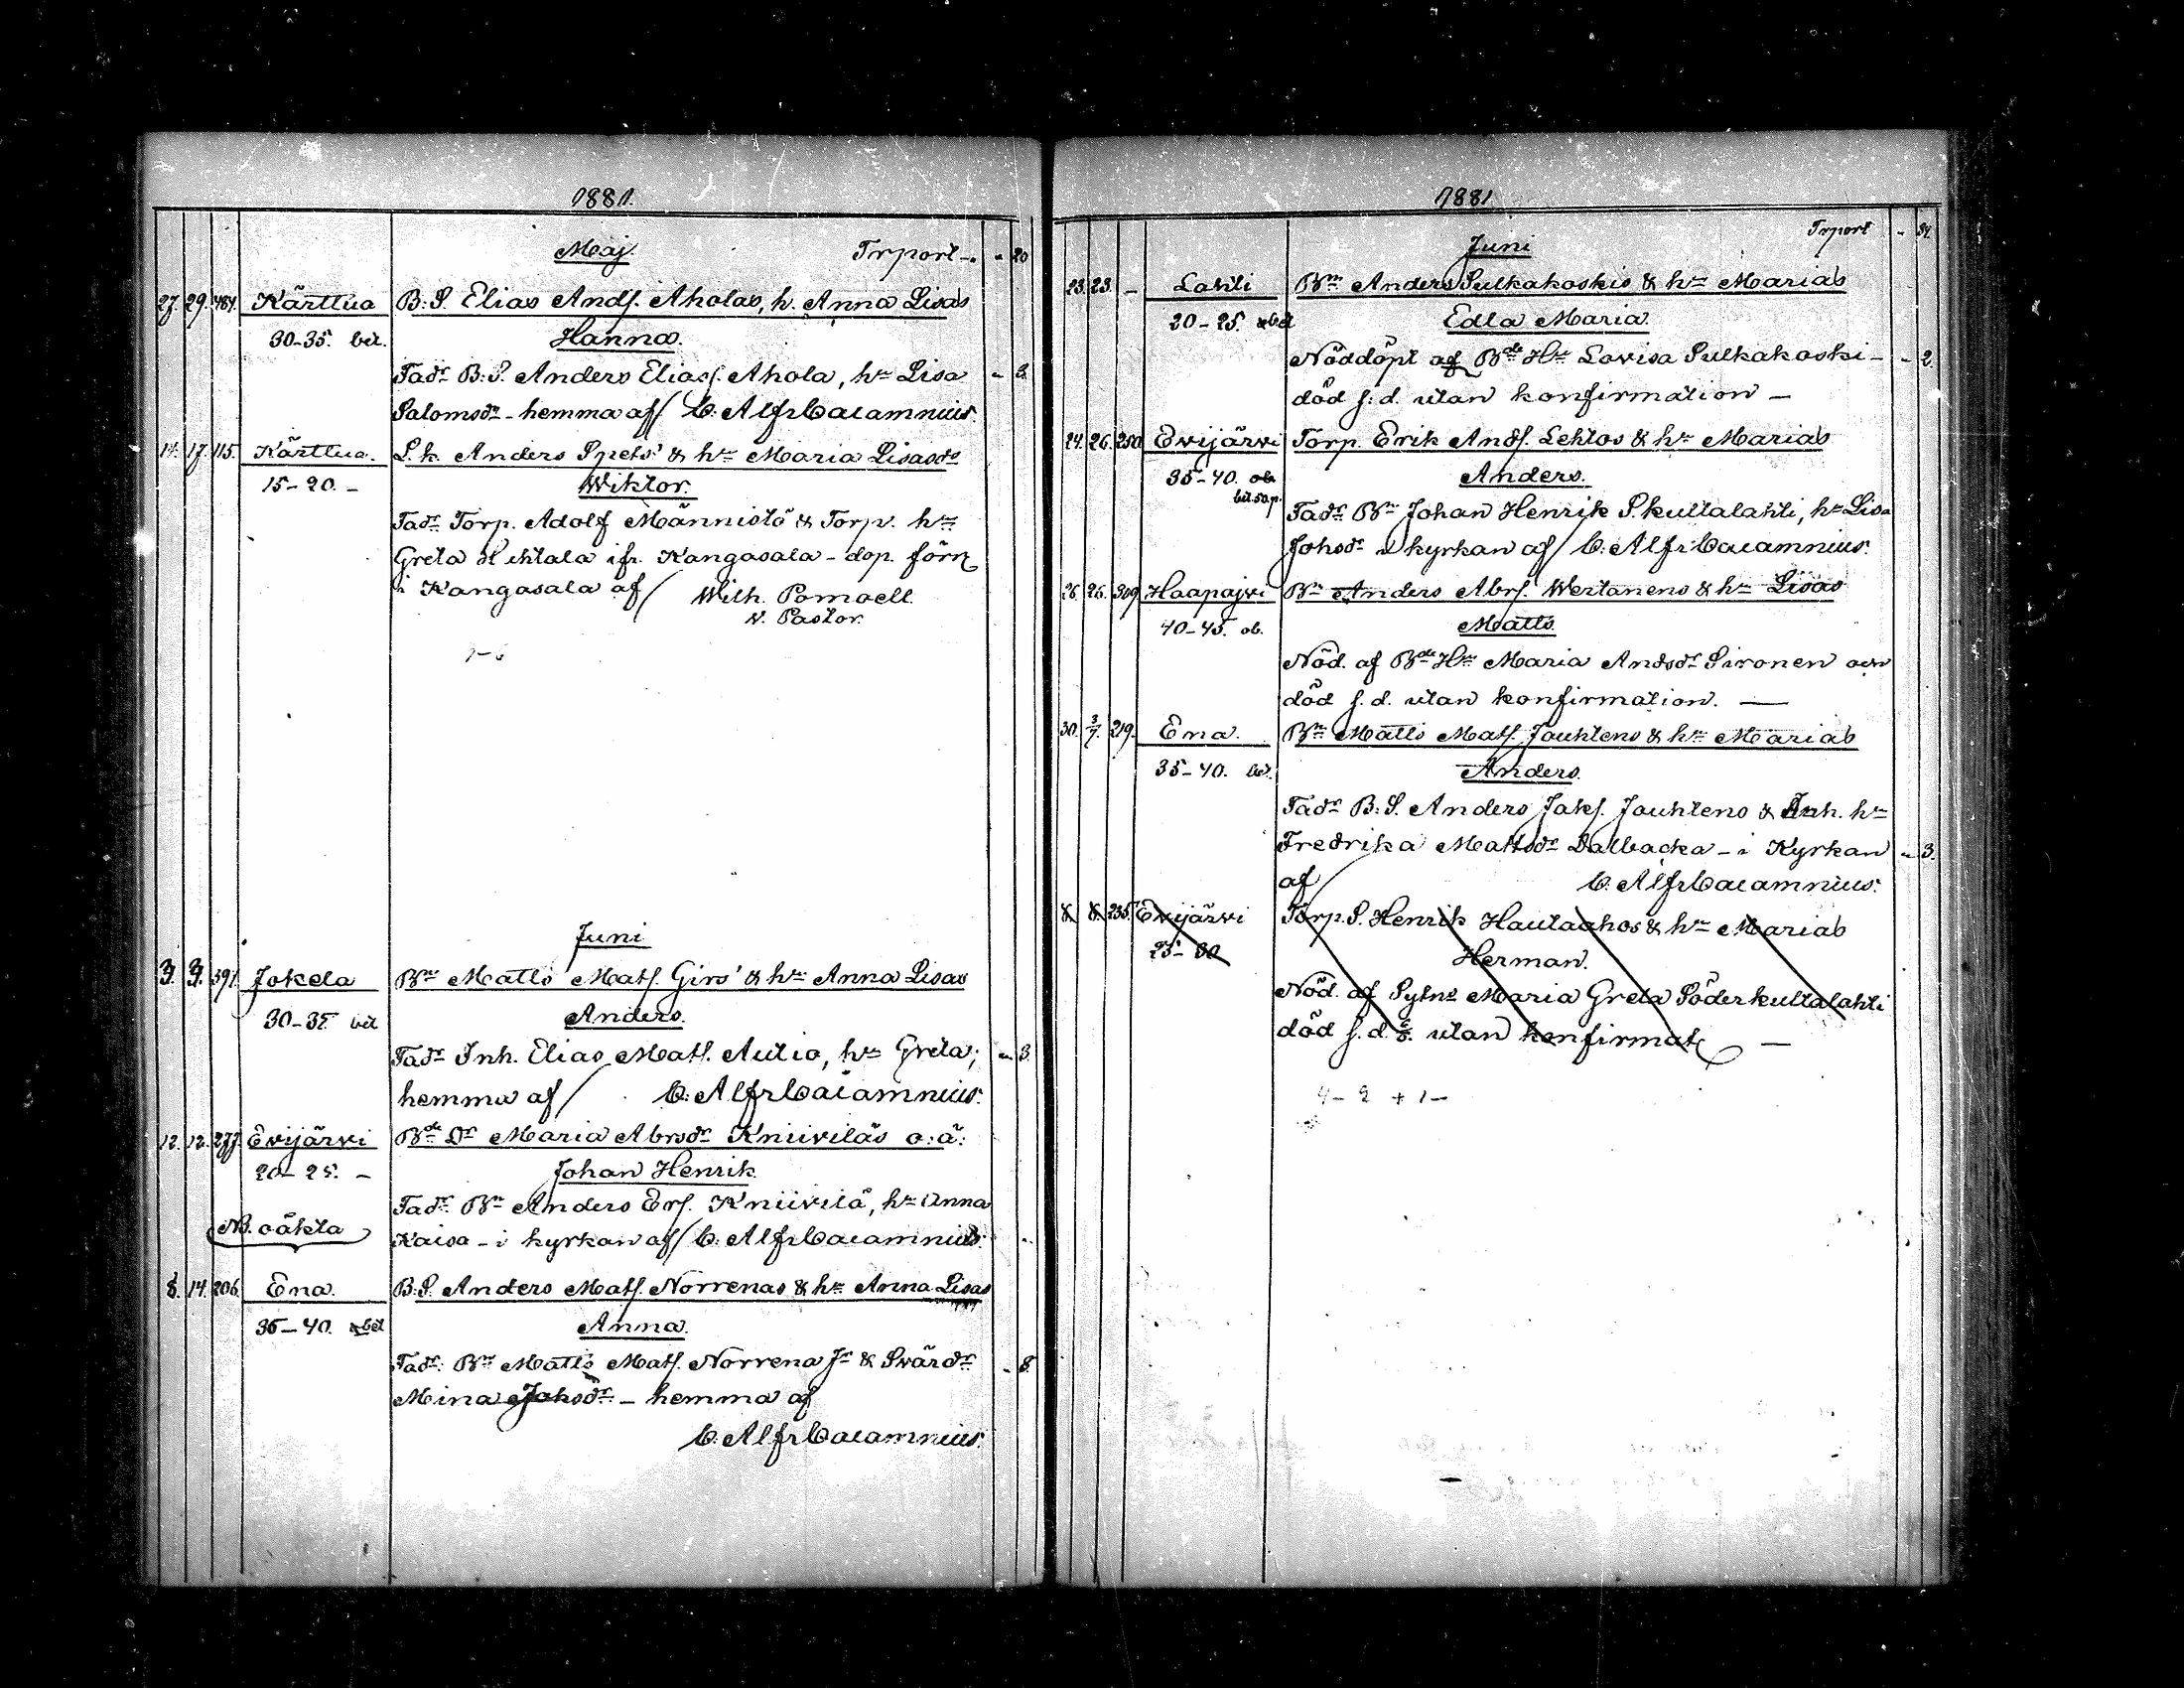 1881.
Maj. Trport - " 20
27. 29. 484. Kärttua B: S. Elias Ands. Aholas, h. Anna Lisas
30-35. bet. Hanna.
Fadr. B: S. Anders Eliass. Ahola, hn Lisa " 3.
Salomsdr - hemma af / C. Alfr Cacamnius.
14. 17. 115. Kärttua. S. k. Anders Spets' & hn Maria Lisasds
15-20. - Wiktor.
Fadr. Torp. Adolf Männistö & Torp. hn
Greta Huhtala ifr. Kangasala - dop. förr.
i Kangasala af / Wilh. Pomoell.
v. Pastor.
Juni
3. 3. 391. Jokela Bn Matts Mats. Girs' & hn Anna Lisas
30-35 bet Anders.
Fadr Inh. Elias Mats. Autio, hn Greta; " 3.
hemma af / C. Alfr Cacamnius.
12. 12. 277. Evijärvi Bde Dr Maria Abrsdr Kniiviläs o: ä:
20-25. - Johan Henrik.
Fadr. Bn Anders Ers. Kniivilä, hn Anna
NB. oäkta Kaisa - i kyrkan af / C. Alfr Cacamnius.
8. 14. 206. Ena. B. S. Anders Mats. Norrenas & hn Anna Lisas
35-40. obet Anna.
Fadr: Bn Matts Mats. Norrena Jr & Svärdr - 8.
Mina Johsdr. - hemma af
C. Alfr Cacamnius.
1881
Juni Trport "
23. 23. - Lahti Bn Anders Sulkakoskis & hn Marias
20-25. obet Edla Maria.
Nöddöpt af Bde Hn Lovisa Sulkakoski - - 2.
död s. d. utan konfirmation -
24. 26. 250 Evijärvi Torp. Erik Ands. Lehtos & hn Marias
35-40. ob. Anders.
bet. 50 p.
Fadr Bn Johan Henrik S. kultalahti, hn Lisa
Johsdr i kyrkan af / C. Alfr Cacamnius.
26. 26. 309 Haapajvi Bn Anders Abrs. Wertanens & hn Lisas
40-45. ob. Matts.
Nöd. af Bde Hn Maria Andsdr Sironen och
död s. d. utan konfirmation. -
30. 3/7. 219. Ena. Bn Matts Mats. Jouhtens & hn Marias
35-40. bet. Anders.
Fadr B: S. Anders Jaks. Jouhtens & Inh. hn
Fredrika Mattsdr Dalbacka - i Kyrkan " 3.
af / C. Alfr Cacamnius.
8. 8. 235. Evijärvi Torp. S. Henrik Hautaahos & hn Marias
25-30 Herman.
Nöd. af Sytns Maria Greta Söderkultalahti
död s. d. utan konfirmat. -
4 - 2 + 1 -